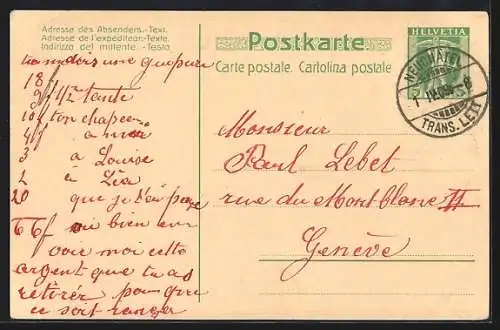 Adresse des Absenders.-Text.
Adresse de l'expéditeur.-Texte.
Indirizzo del mittente.-Testo.
Postkarte
Carte postale. Cartolina postale
HELVETIA
NEUCHATEL
TRANS. LETT
une guepure
18
9f 1/2 tante
10f ton chapeau
4f a
3 a Louise
2 à Léa
20 que je t'ai
66f bien
voie moi cette
argent que tu as
retirer pour que
ce soit ranger
Monsieur
Paul Lebet
rue du Montblanc 11
Genève